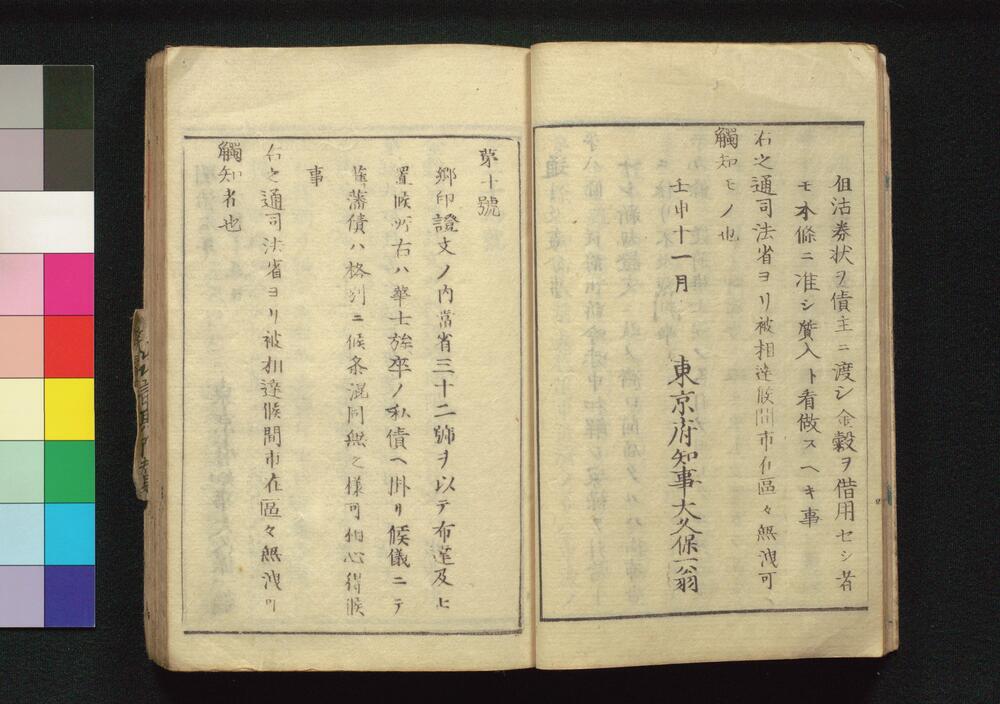 伹沽券状ヲ債主ニ渡シ金穀ヲ借用セシ者
モ本條ニ准シ質入ト看做スヘキ事
右之通司法省ヨリ被相達候間市在區々無洩可
觸知モノ也
壬申十一月　東京府知事大久保一翁
第十號
郷印證文ノ内當省三十二號ヲ以テ布達及ヒ
置候所右ハ華士族卒ノ私債ヘ掛リ候儀ニテ
舊藩債ハ格別ニ候条混同無之様可相心得候
事
右之通司法省ヨリ被相達候間市在區々無洩可
觸知者也